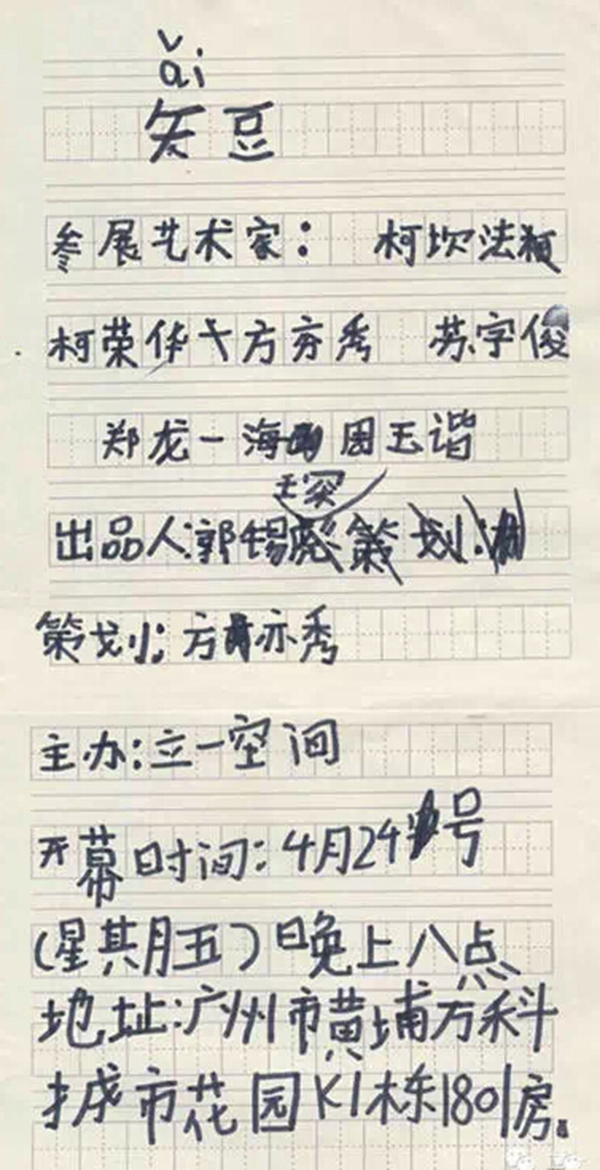 ǎi
矢豆
参展艺术家: 柯坎法
柯荣华+方夯秀 苏字俊
郑龙一海 周玉谐
出品人:郭锡
策划: 方亦秀
主办:立一空间
开幕时间:4月24号
(星期五)晚上八点
地址:广州市黄埔万科
城市花园K1栋1801房.